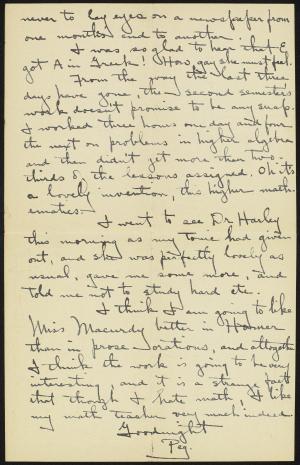 never to lay eyes on a newspaper from
one month's end to another.
I was so glad to hear that E.
got A in Greek! How gay she must feel.
From the way the last three
days have gone, the second semester's
work doesn't promise to be any snap.
I worked three hours one day and four
the next on problems in higher algebra
and then didn't get more than two-
thirds of the lessons assigned. Oh it's
a lovely invention, this higher math-
ematics
I went to see Dr Harley
this morning as my tonic had given
out, and she was perfectly lovely as
usual, gave me some more, and
told me not to study hard etc.
I think I am going to like
Miss Macurdy better in Homer
than in prose orations, and altogether
I think the work is going to be very
interesting, and it is a strange fact
that though I hate math, I like
my math teacher very much indeed.
Goodnight
Peg.